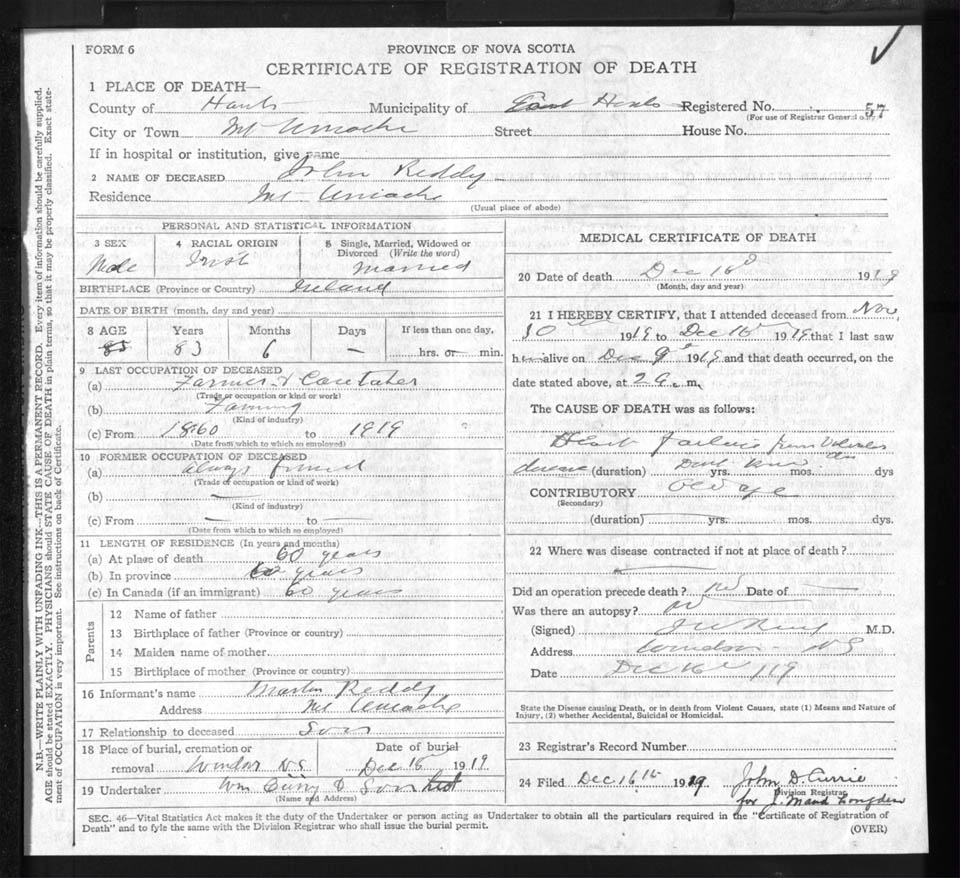 FORM 6
PROVINCE OF NOVA SCOTIA
CERTIFICATE OF REGISTRATION OF DEATH
1 PLACE OF DEATH—
County of Hants Municipality of East Hants Registered No. 57
(For use of Registrar General only)
City or Town Mt Uniacke Street House No.
If in hospital or institution, give name
2 NAME OF DECEASED John Reddy
Residence Mt Uniacke
(Usual place of abode)
PERSONAL AND STATISTICAL INFORMATION
3 SEX Male
4 RACIAL ORIGIN Irish
5 Single, Married, Widowed or Divorced (Write the word) Married
BIRTHPLACE (Province or Country) Ireland
DATE OF BIRTH (month, day and year)
8 AGE Years Months Days If less than one day,
85 83 6 — hrs. or min.
9 LAST OCCUPATION OF DECEASED
(a) Farmer & Caretaker
(Trade or occupation or kind or work)
(b) Farming
(Kind of industry)
(c) From 1860 to 1919
(Date from which to which so employed)
10 FORMER OCCUPATION OF DECEASED
(a) Always farmed
(Trade of occupation or kind of work)
(b) —
(Kind of industry)
(c) From — to —
(Date from which to which so employed)
11 LENGTH OF RESIDENCE (In years and months)
(a) At place of death 60 years
(b) In province 60 years
(c) In Canada (if an immigrant) 60 years
Parents
12 Name of father
13 Birthplace of father (Province or country)
14 Maiden name of mother
15 Birthplace of mother (Province or country)
16 Informant's name Martin Reddy
Address Mt Uniacke
17 Relationship to deceased Son
18 Place of burial, cremation or removal Windsor N.S
Date of burial Dec 16 1919
19 Undertaker Wm Curry & Son
(Name and Address)
MEDICAL CERTIFICATE OF DEATH
20 Date of death Dec 1919
(Month, day and year)
21 I HEREBY CERTIFY, that I attended deceased from Nov
10 1919 to Dec 1919 that I last saw
h alive on Dec 9 1919 and that death occurred, on the
date stated above, at 2 a. m.
The CAUSE OF DEATH was as follows:
Heart failure from
disease (duration) yrs. mos. dys
CONTRIBUTORY Old age
(Secondary)
(duration) yrs. mos. dys.
22 Where was disease contracted if not at place of death?
Did an operation precede death? no Date of —
Was there an autopsy? no
(Signed) M.D.
Address Windsor N S
Date Dec 16 19
State the Disease causing Death, or in death from Violent Causes, state (1) Means and Nature of
Injury, (2) whether Accidental, Suicidal or Homicidal.
23 Registrar's Record Number
24 Filed Dec 16th 1919 John D. Currie
Division Registrar
for J. Maud
SEC. 46—Vital Statistics Act makes it the duty of the Undertaker or person acting as Undertaker to obtain all the particulars required in the "Certificate of Registration of
Death" and to fyle the same with the Division Registrar who shall issue the burial permit.
(OVER)
N.B.—WRITE PLAINLY WITH UNFADING INK—THIS IS A PERMANENT RECORD. Every item of information should be carefully supplied.
AGE should be stated EXACTLY. PHYSICIANS should STATE CAUSE OF DEATH in plain terms, so that it may be properly classified. Exact state-
ment of OCCUPATION is very important. See instructions on back of Certificate.